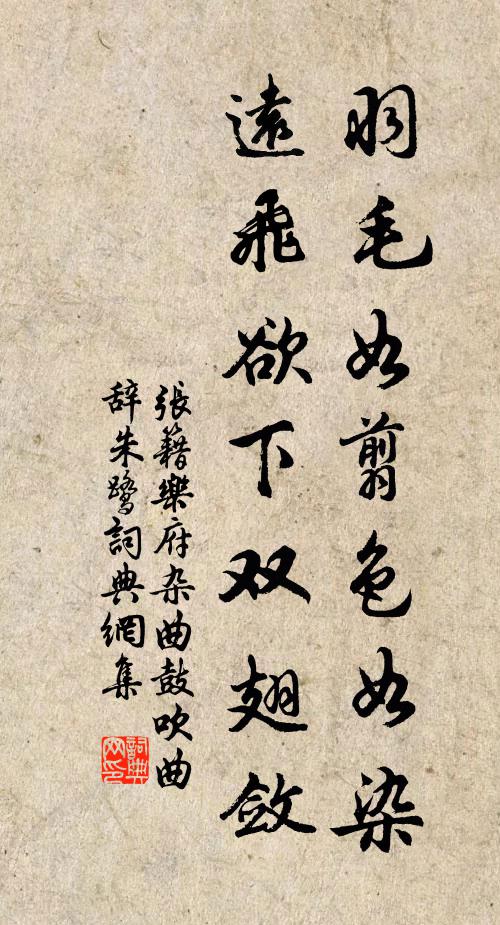 羽毛如翦色如染
遠飛欲下双翅斂
張籍樂府杂曲鼓吹曲
辞朱鹭詞典網集
詞典网印